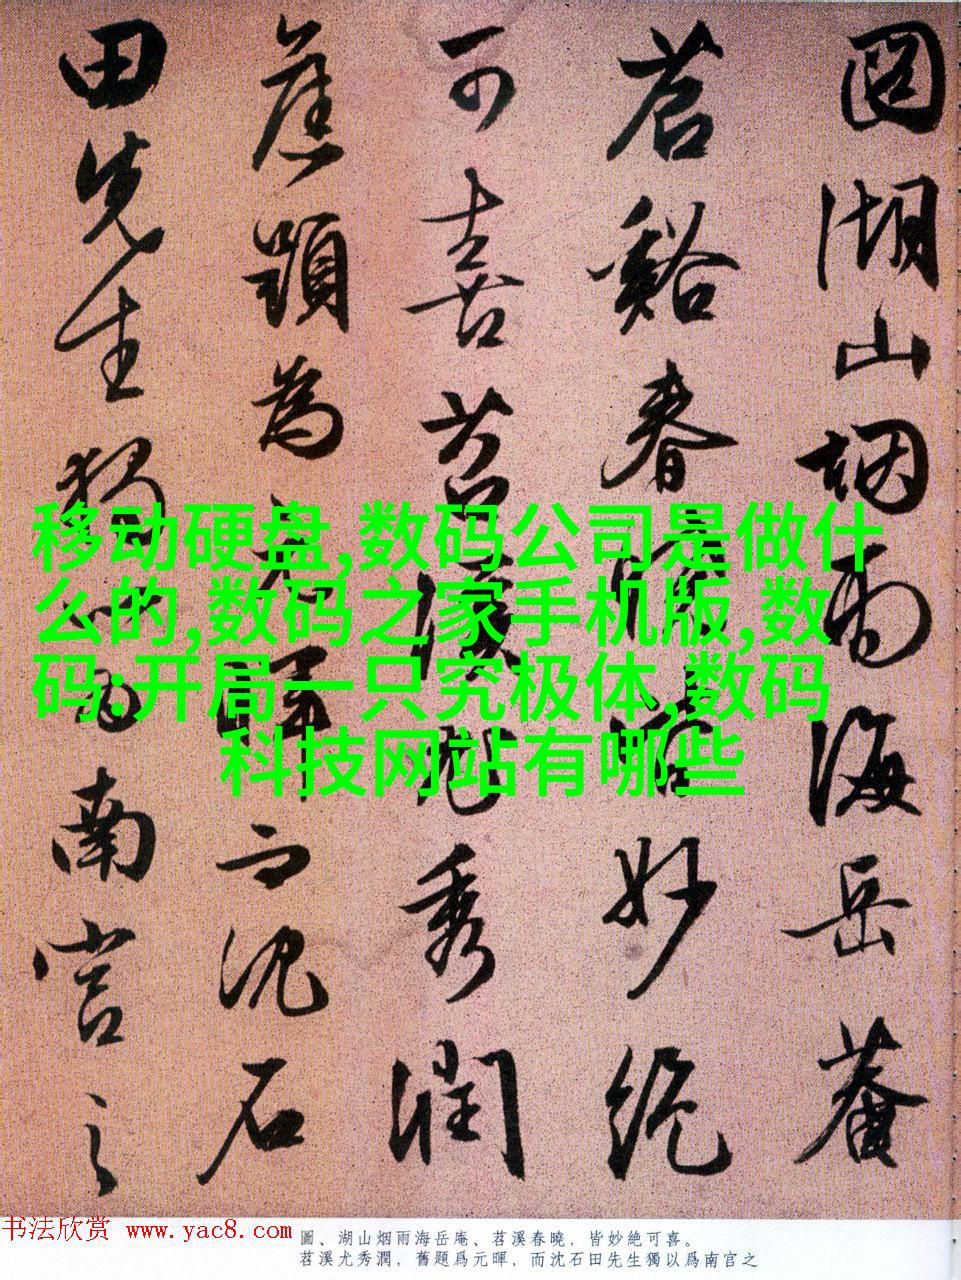 圖湖山烟雨海岳菴
苕谿春曉皆妙絶
可喜苕溪尤秀潤
舊題為元暉而沈石
田先生獨以為南宮之
移动硬盘,数码公司是做什
么的,数码之家手机版,数
码:开局一只究极体,数码
科技网站有哪些
书法欣赏 www.yac8.com
圖、湖山烟雨海岳庵、苕溪春曉，皆妙絶可喜。
苕溪尤秀潤，舊題爲元暉，而沈石田先生獨以爲南宫之